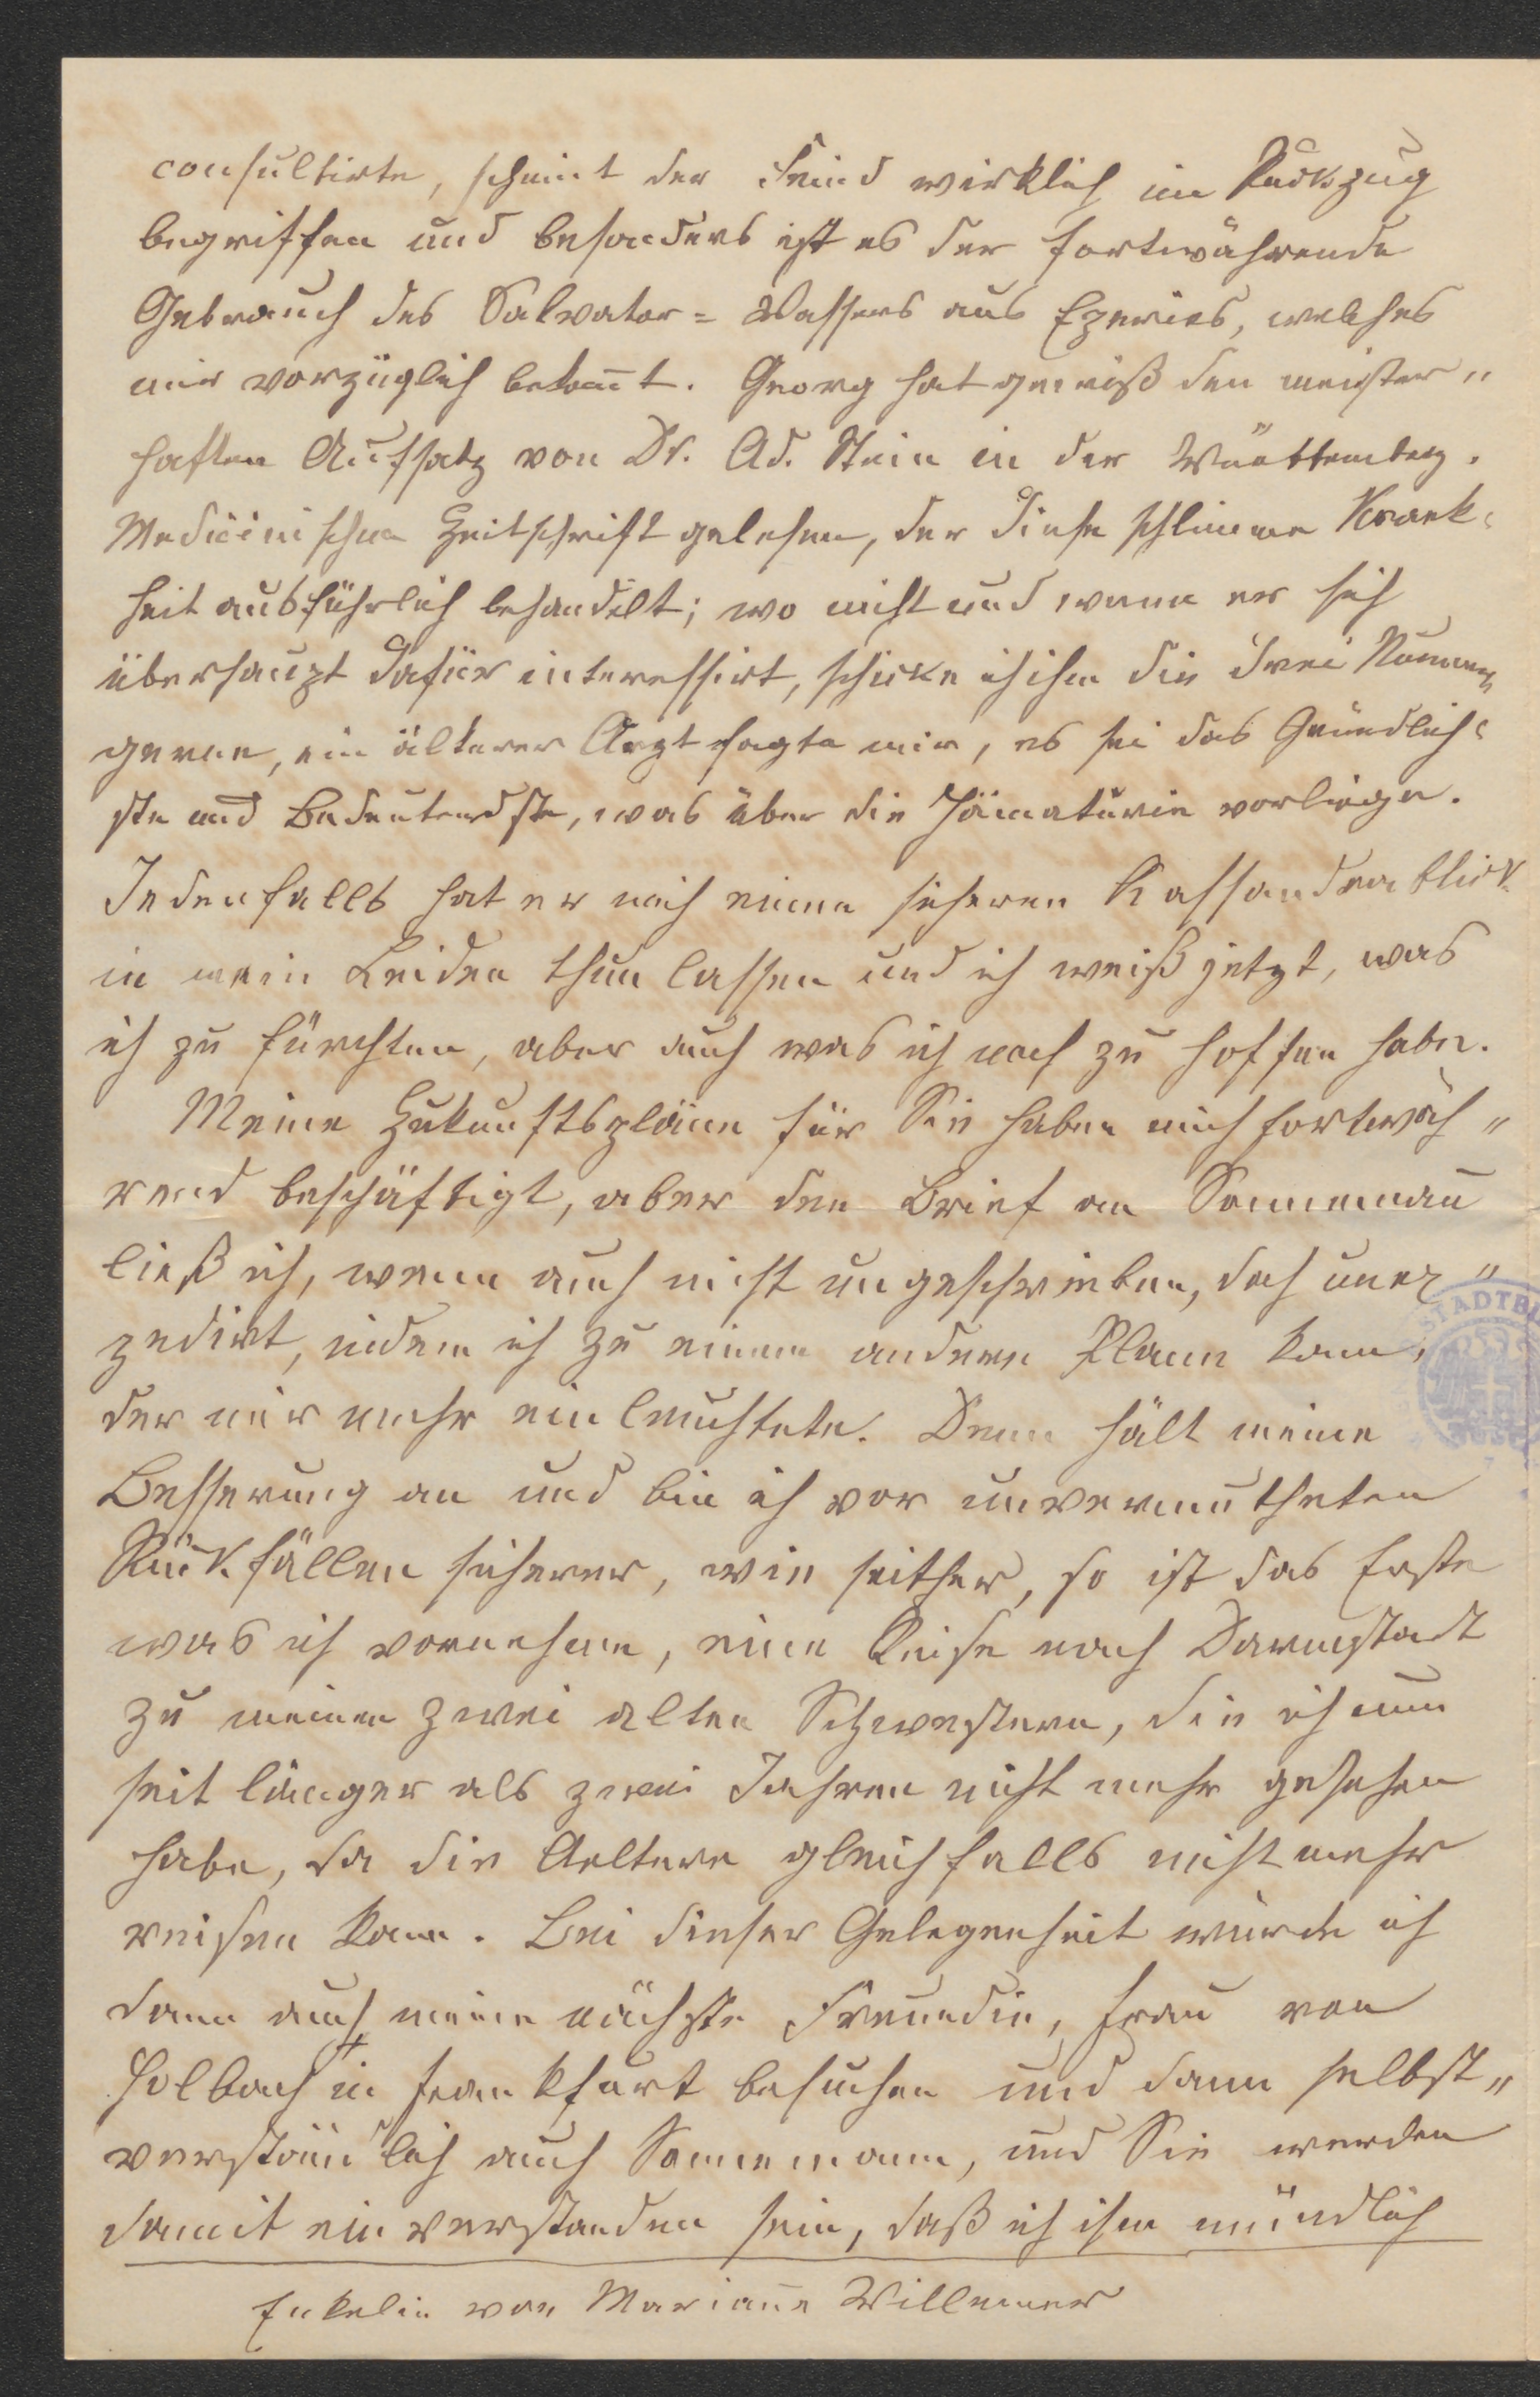 consultirte, scheint der Feind wirklich im Rückzug
begriffen und besonders ist es der fortwährende
Gebrauch des Salvator= Wassers aus Eperies, welches
mir vorzüglich bekom̅t. Georg hat gewiß den meister„
haften Aufsatz von Dr. Ad. Stein in der Württemberg.
Medicinischen Zeitschrift gelesen, der diese schlimme Krank=
heit ausführlich behandelt; wo nicht und wenn er sich
überhaupt dafür interessirt, schicke ich ihm die drei Nummern
gerne, ein älterer Arzt sagte mir, es sei das Gründlich=
ste und Bedeutendste, was über die Hämaturie vorliege.
Jedenfalls hat er mich einen sicheren Kassandrablick
in mein Leiden thun lassen und ich weiß jetzt, was
ich zu fürchten, aber auch was ich noch zu hoffen habe.
Meine Zukunftspläne für Sie haben mich fortwäh„
rend beschäftigt, aber den Brief an Sonneman̅
ließ ich, wenn auch nicht ungeschrieben, doch unex„
pedirt, indem ich zu einem andern Plane kam,
der mir mehr einleuchtete. Denn hält meine
Besserung an und bin ich vor unvermutheten
Rückfällen sicherer, wie seither, so ist das Erste
was ich vornehme, eine Reise nach Darmstadt
zu meinen zwei alten Schwestern, die ich nun
seit länger als zwei Jahren nicht mehr gesehen
habe, da die Aeltere gleichfalls nicht mehr
reisen kann. Bei dieser Gelegenheit würde ich
dann auch meine nächste Freundin, Frau von
Holbach + in Frankfurt besuchen und dann selbst„
verständlich auch Sonnemann, und Sie werden
damit einverstanden sein, daß ich ihm mündlich
Enkelin von Marian̅e Willemer
STADTB